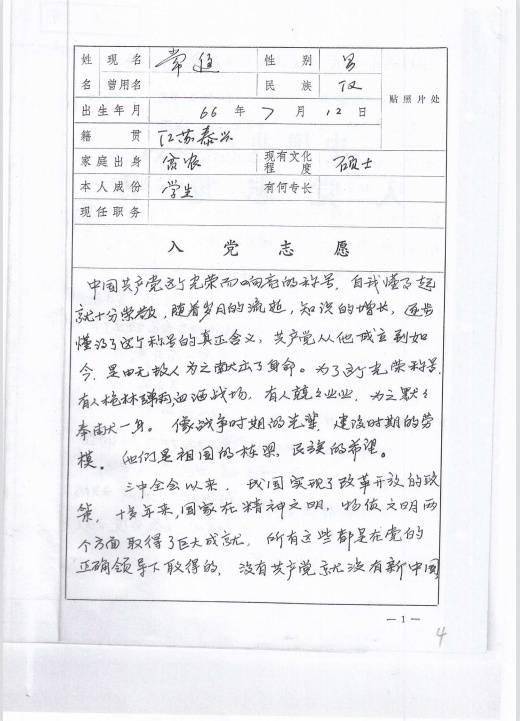 姓 现名 常 性别 男
名 曾用名 民族 汉
贴照片处
出生年月 66 年 7 月 12 日
籍贯 江苏泰兴
家庭出身 富农 现有文化程度 硕士
本人成份 学生 有何专长
现任职务
入党志愿
中国共产党这个光荣而响亮的称号，自我懂事起
就十分崇敬，随着岁月的流逝，知识的增长，逐步
懂得了这个称号的真正含义，共产党从他成立到如
今，是由无数人为之献出了身命。为了这个光荣称号，
有人枪林弹雨血洒战场，有人兢兢业业，为之默默
奉献一身。像战争时期的先辈，建设时期的劳
模。他们是祖国的栋梁，民族的希望。
三中全会以来，我国实现了改革开放的政
策，十多年来，国家在精神文明，物质文明两
个方面取得了巨大成就，所有这些都是在党的
正确领导下取得的，没有共产党就没有新中国
— 1 —
4